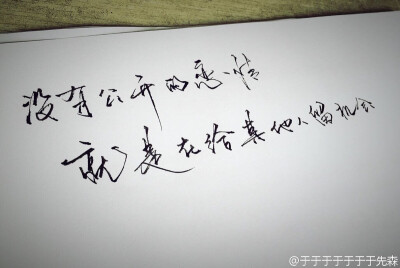 没有公开的恋情
就是在给其他人留机会
@于于于于于于于先森